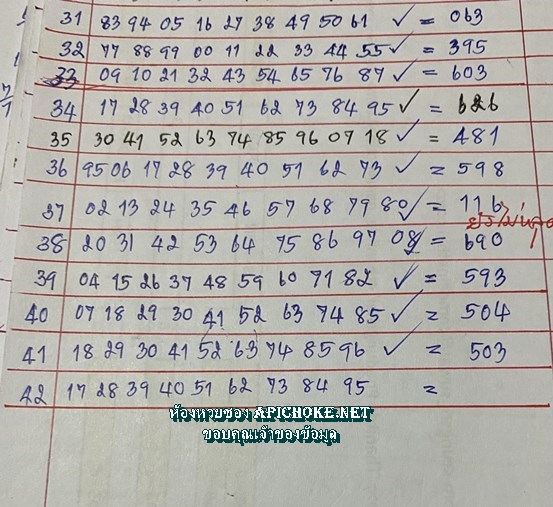 31 83 94 05 16 27 38 49 50 61 ✓ = 063
32 77 88 99 00 11 22 33 44 55 ✓ = 395
33 09 10 21 32 43 54 65 76 87 ✓ = 603
34 17 28 39 40 51 62 73 84 95 ✓ = 626
35 30 41 52 63 74 85 96 07 18 ✓ = 481
36 95 06 17 28 39 40 51 62 73 ✓ = 598
37 02 13 24 35 46 57 68 79 80 ✓ = 116
38 20 31 42 53 64 75 86 97 08 ✓ = 690
39 04 15 26 37 48 59 60 71 82 ✓ = 593
40 07 18 29 30 41 52 63 74 85 ✓ = 504
41 18 29 30 41 52 63 74 85 96 ✓ = 503
42 17 28 39 40 51 62 73 84 95 =
ห้องหวยซอง APICHOKE.NET
ขอบคุณเจ้าของข้อมูล